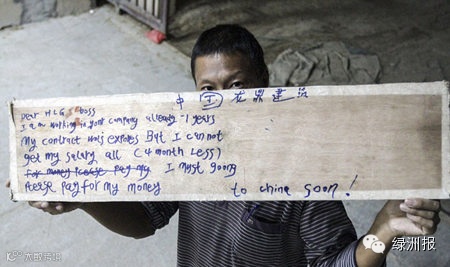 中 工 龙鼎建设
Dear HLG : boss
I am working in your company already 1 years
My contract was expores But I can not
get my salary all (4 month Less)
for money Please pay my I must going
Please pay for my money to china soon!
绿洲报
大散传媒